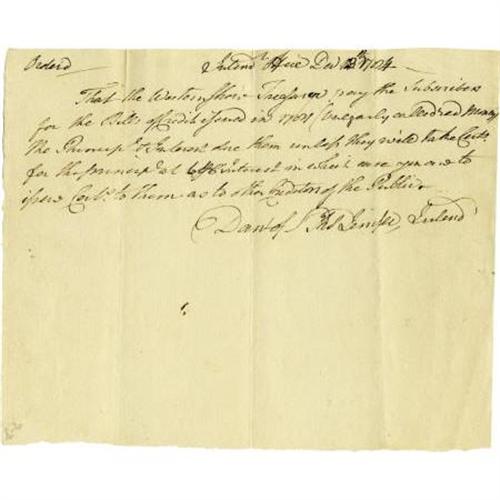 Orderd Intend.ts Office Decr 1784
That the Western Shore Treasurer pay the Subscribers
for the Bills of Credit issued in 1781 (vulgarly called red Money)
the Principal & Interest due them unless they will take Certs.
for the principal at 6 PCt Interest in which case you are to
issue Certs. to them as to other Creditors of the Public
Danl of St Thos Jenifer Intend.t